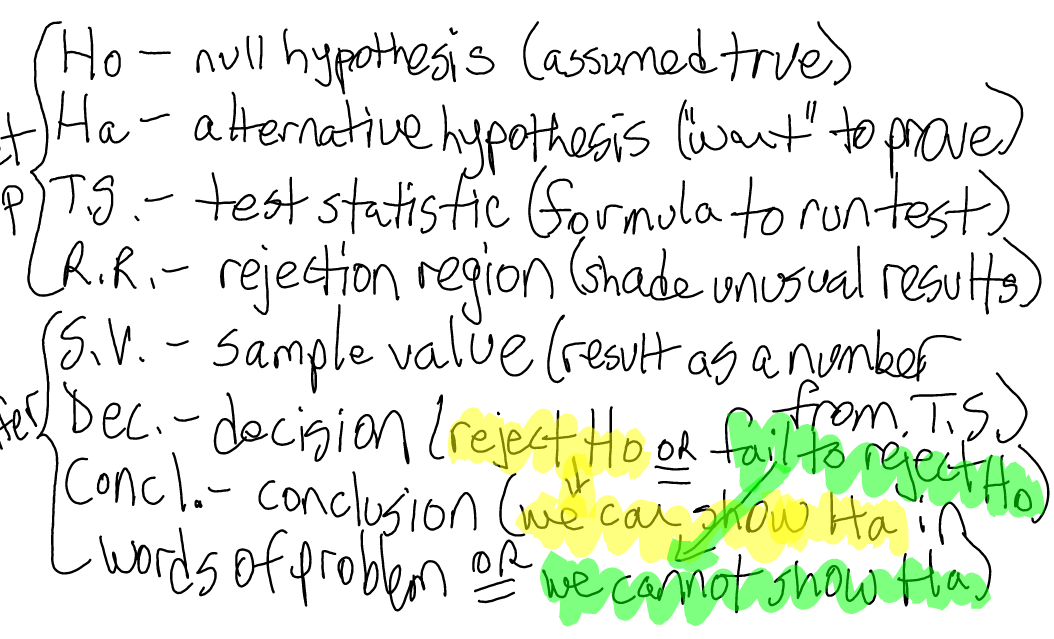 Ho - null hypothesis (assumed true)
Ha - alternative hypothesis ("want" to prove)
T.S. - test statistic (formula to run test)
R.R. - rejection region (shade unusual results)
S.V. - sample value (result as a number
from T.S.)
Dec. - decision (reject Ho OR fail to reject Ho)
Concl. - conclusion (we can show Ha in
words of problem OR we cannot show Ha)